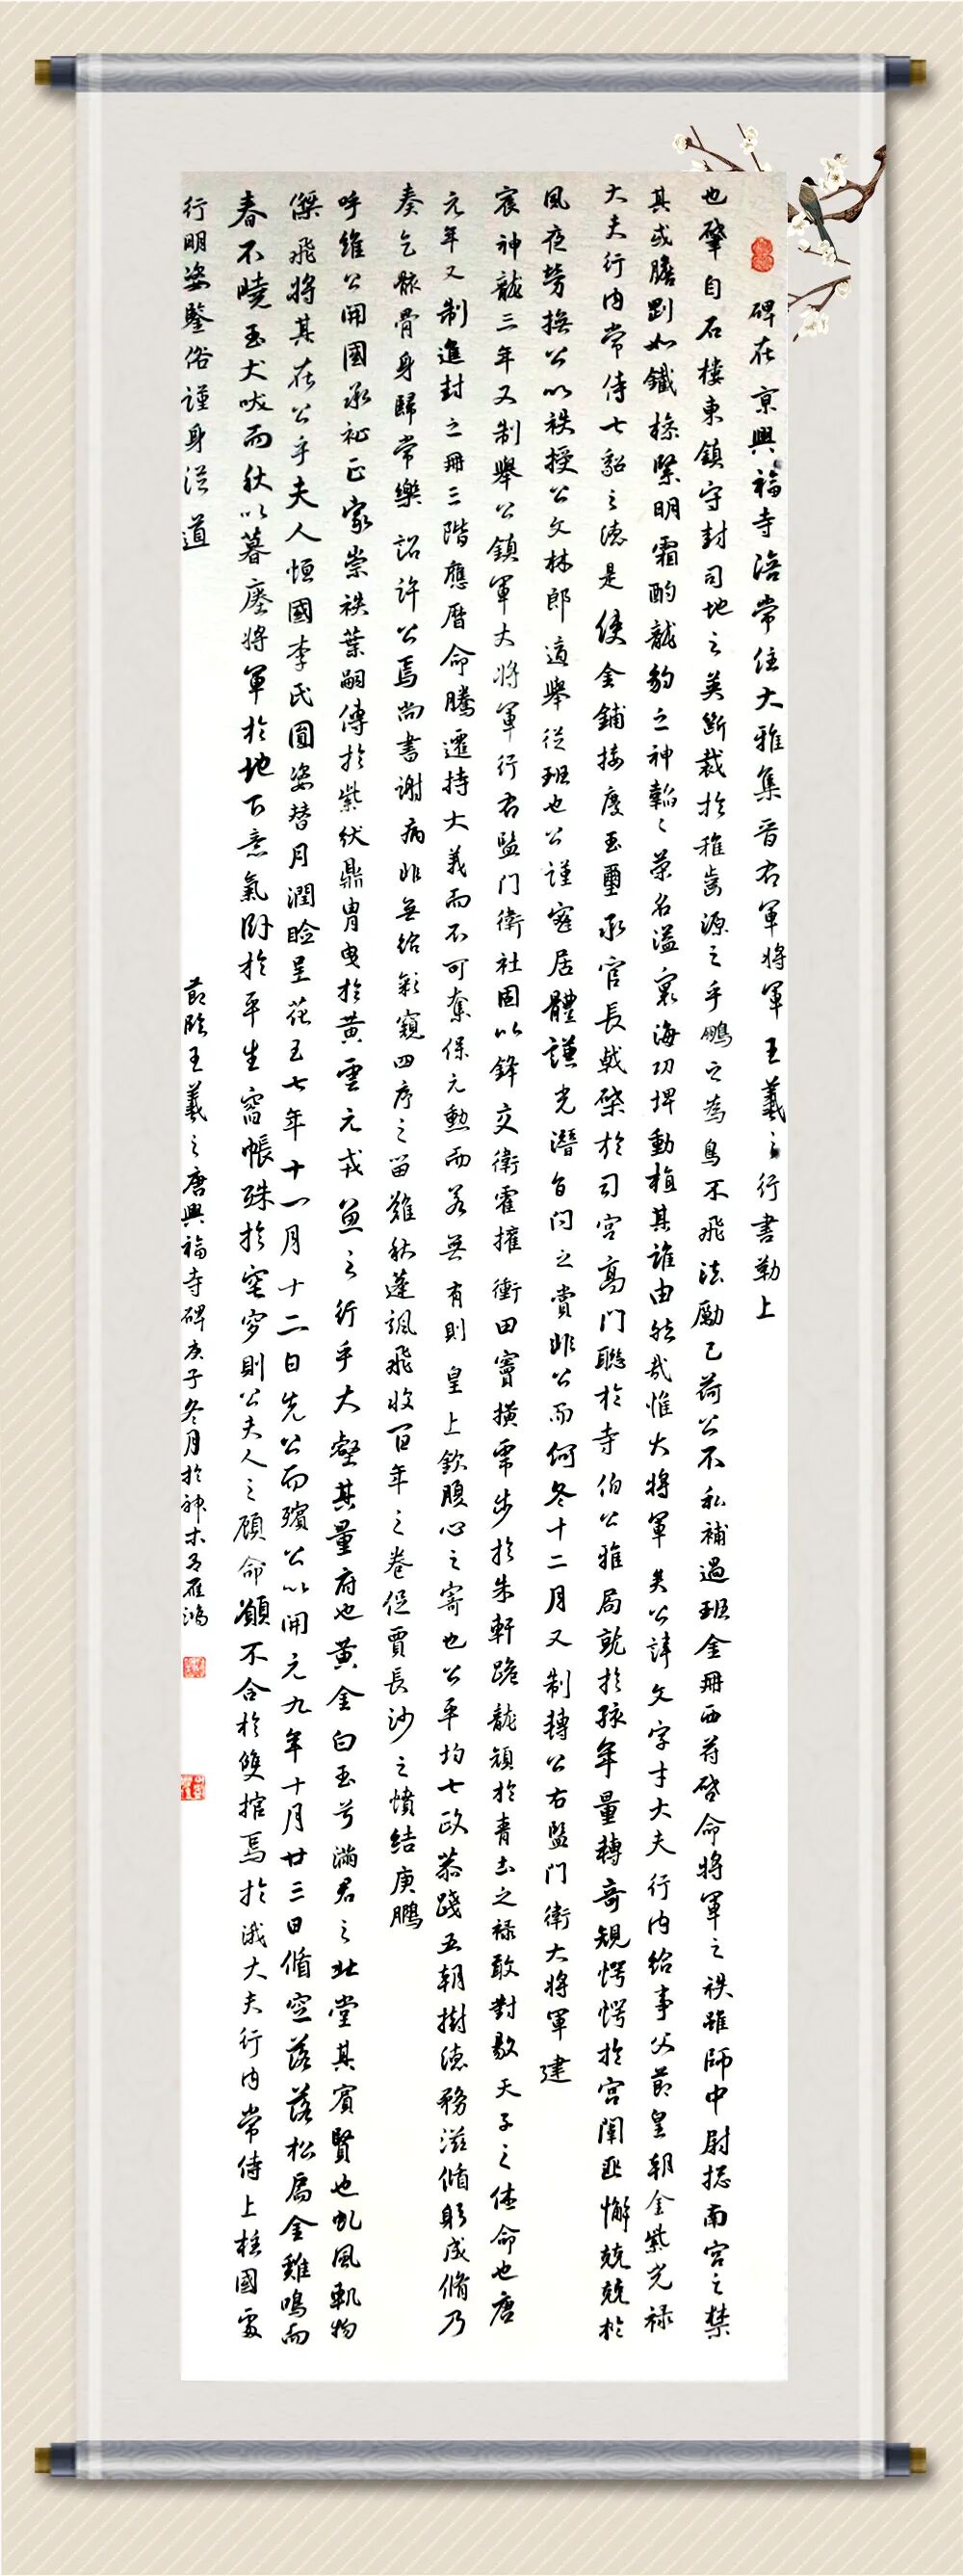 碑在京興福寺陪常住大雅集晋右軍將軍王羲之行書勒上
也肇自石樓東鎮守封司地之英斷裁於稚齒源之乎鵬之為鳥不飛法勵已荷公不私補過班金冊西苻啓命將軍之袟雖師中尉揔南宮之禁
其或膽劌如鐵操緊明霜酌龍豹之神韜々榮名溢寰海功埤動植其誰由然哉惟大將軍矣公諱文字才大夫行内給事父節皇朝金紫光禄
大夫行内常侍七貂之德是使金鋪接慶玉璽承官長戟槊於司宮高門聯於寺伯公雅局就於孩年量轉奇規愕愕於宮闈匪懈兢兢於
風夜勞撫公以袟授公文林郎適舉從班也公謹寔居體謙光潛旨問之賞非公而何冬十二月又制轉公右監门衛大將軍建
宸神龍三年又制舉公鎮軍大將軍行右監门衛社固以鋒交衛霍擁衝田竇横霈步於朱軒跪龍顏於青玉之禄敢對敭天子之休命也唐
元年又制進封之冊三階應曆命騰遷持大義而不可奪保元勳而若無有則皇上欽腹心之寄也公平均七政恭踐五朝樹德務滋脩躬戍脩乃
奏乞骸骨身歸常樂詔許公焉尚書謝病非無給彩窺四序之留難秋蓬颯飛收百年之卷促賈長沙之憤結庚鵩
呼維公開國承祉正家崇袟葉嗣傳於紫紱鼎胄曳於黄雲元戎兼之行乎大壑其量府也黄金白玉兮滿君之北堂其賓賢也虬風軌物
傑飛將其在公乎夫人恒國李氏圓姿替月潤臉呈花玉七年十一月十二日先公而殯公以開元九年十月廿三日脩窆落落松扄金雞鳴而
春不曉玉犬吠而秋以暮塵將軍於地下意氣卧於平生窗帳殊於窀穸則公夫人之顧命顧不合於雙棺焉於濊大夫行内常侍上柱國處
行明姿鑒俗謹身從道
節臨王羲之唐興福寺碑庚子冬月於神木為雁鴻